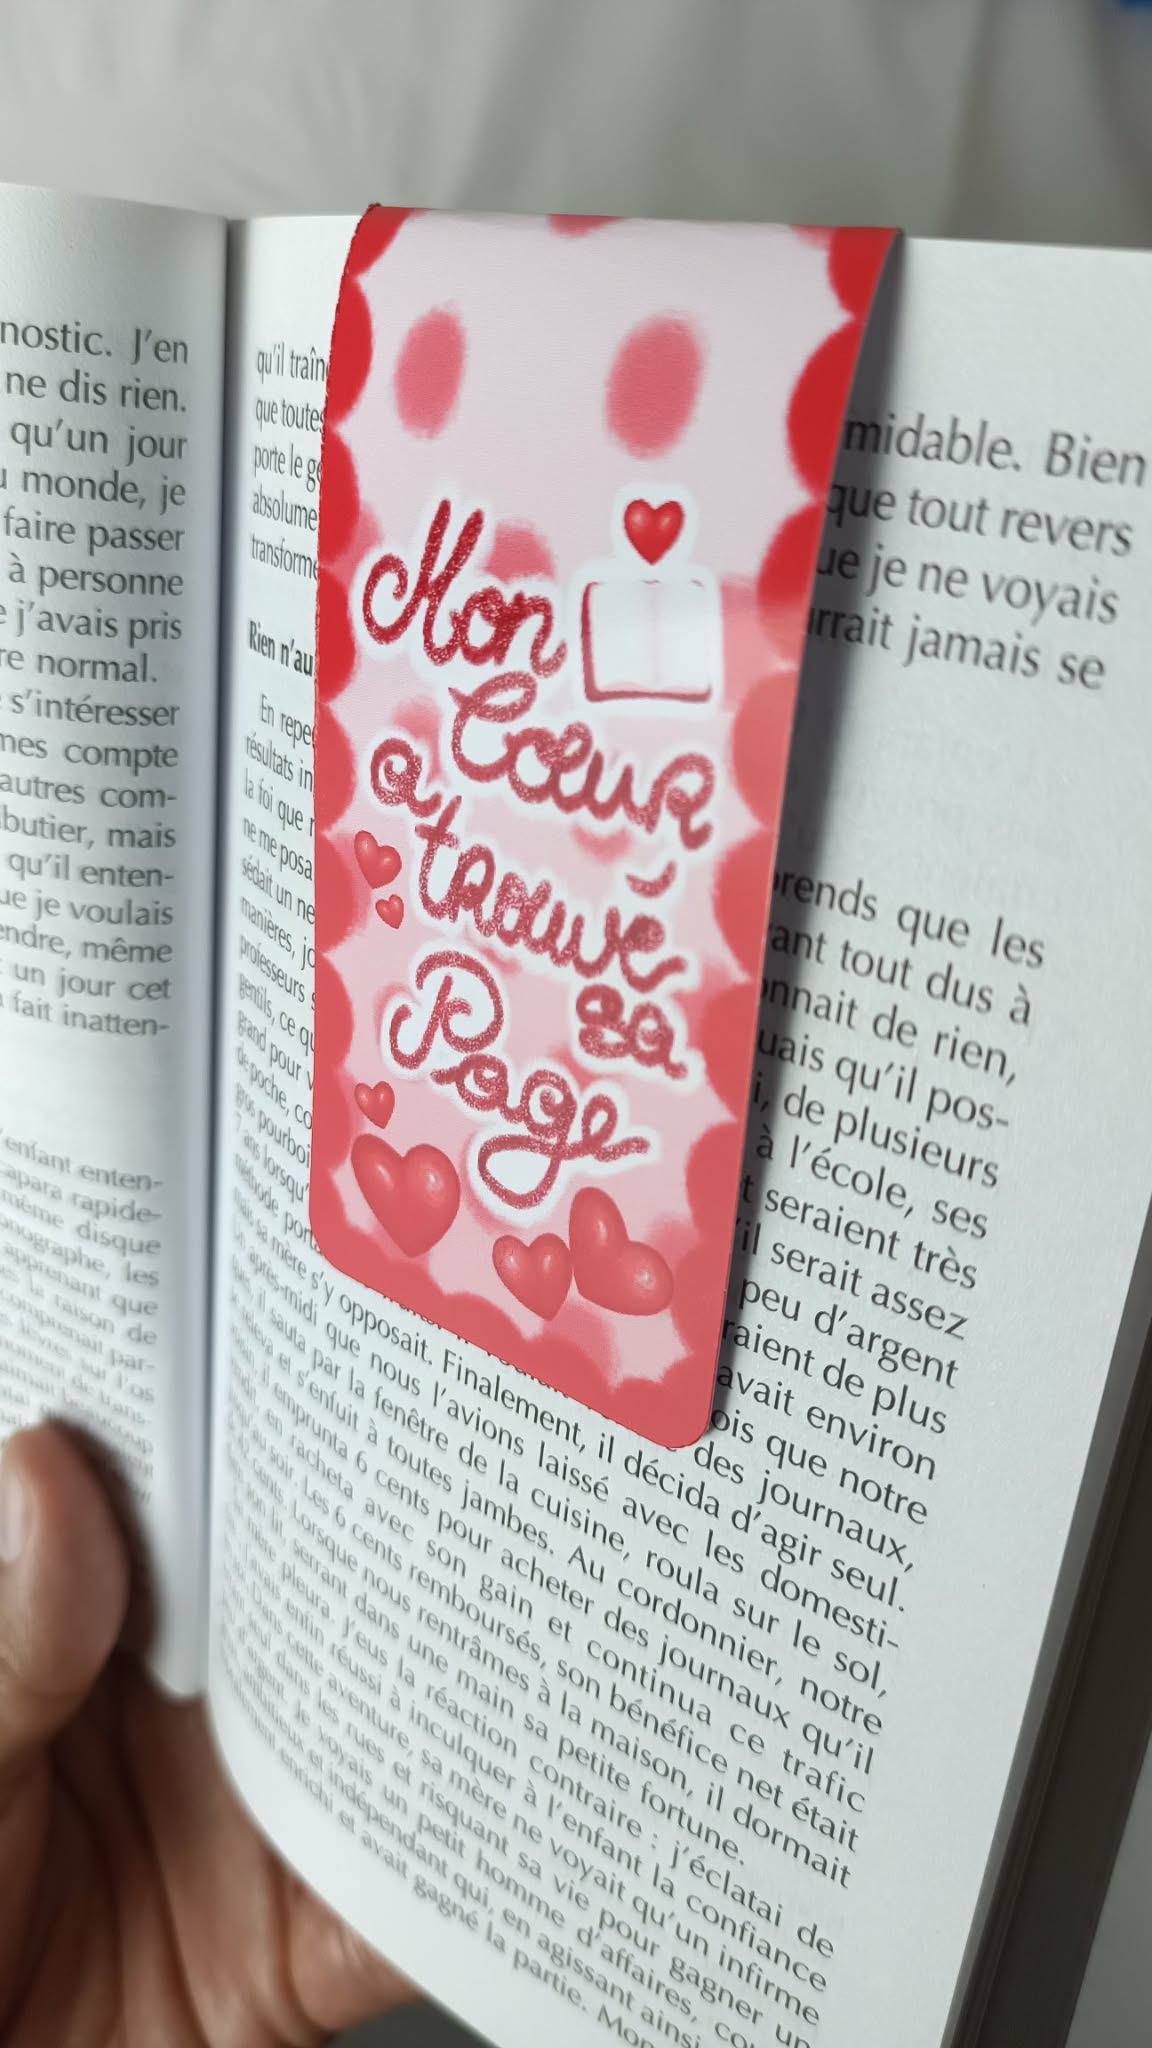 nostic. J'en
ne dis rien.
qu'un jour
monde, je
faire passer
à personne
j'avais pris
normal.
s'intéresser
compte
autres com-
mais
qu'il enten-
je voulais
même
un jour cet
fait inatten-
'enfant enten-
rapide-
même disque
les
apprenant que
la raison de
par-
qu'il traîn
que toutes
porte le g
absolume
transforme
Rien n'au
En repe
résultats in
la foi que
ne me posa
sédait un ne
manières, jo
professeurs
gentils, ce qu
grand pour v
de poche, co
gros pourboi
7 ans lorsqu'
méthode port
mais sa mère s'y opposait. Finalement, il décida d'agir seul.
Un après-midi que nous l'avions laissé avec les domesti-
ques, il sauta par la fenêtre de la cuisine, roula sur le sol,
se releva et s'enfuit à toutes jambes. Au cordonnier, notre
voisin, il emprunta 6 cents pour acheter des journaux qu'il
vendit, en racheta avec son gain et continua ce trafic
jusqu'au soir. Les 6 cents remboursés, son bénéfice net était
de 42 cents. Lorsque nous rentrâmes à la maison, il dormait
dans son lit, serrant dans une main sa petite fortune.
Sa mère pleura. J'eus la réaction contraire : j'éclatai de
rire. J'avais enfin réussi à inculquer à l'enfant la confiance
en soi. Dans cette aventure, sa mère ne voyait qu'un infirme
errant seul dans les rues et risquant sa vie pour gagner un
peu d'argent. Je voyais un petit homme d'affaires, cou
ambitieux et indépendant qui, en agissant ainsi
enrichi et avait gagné la partie. Mon
midable. Bien
que tout revers
je ne voyais
jamais se
prends que les
tout dus à
de rien,
qu'il pos-
de plusieurs
à l'école, ses
seraient très
'il serait assez
peu d'argent
de plus
avait environ
que notre
des journaux,
Mon
Cœur
a
trouvé
sa
Page